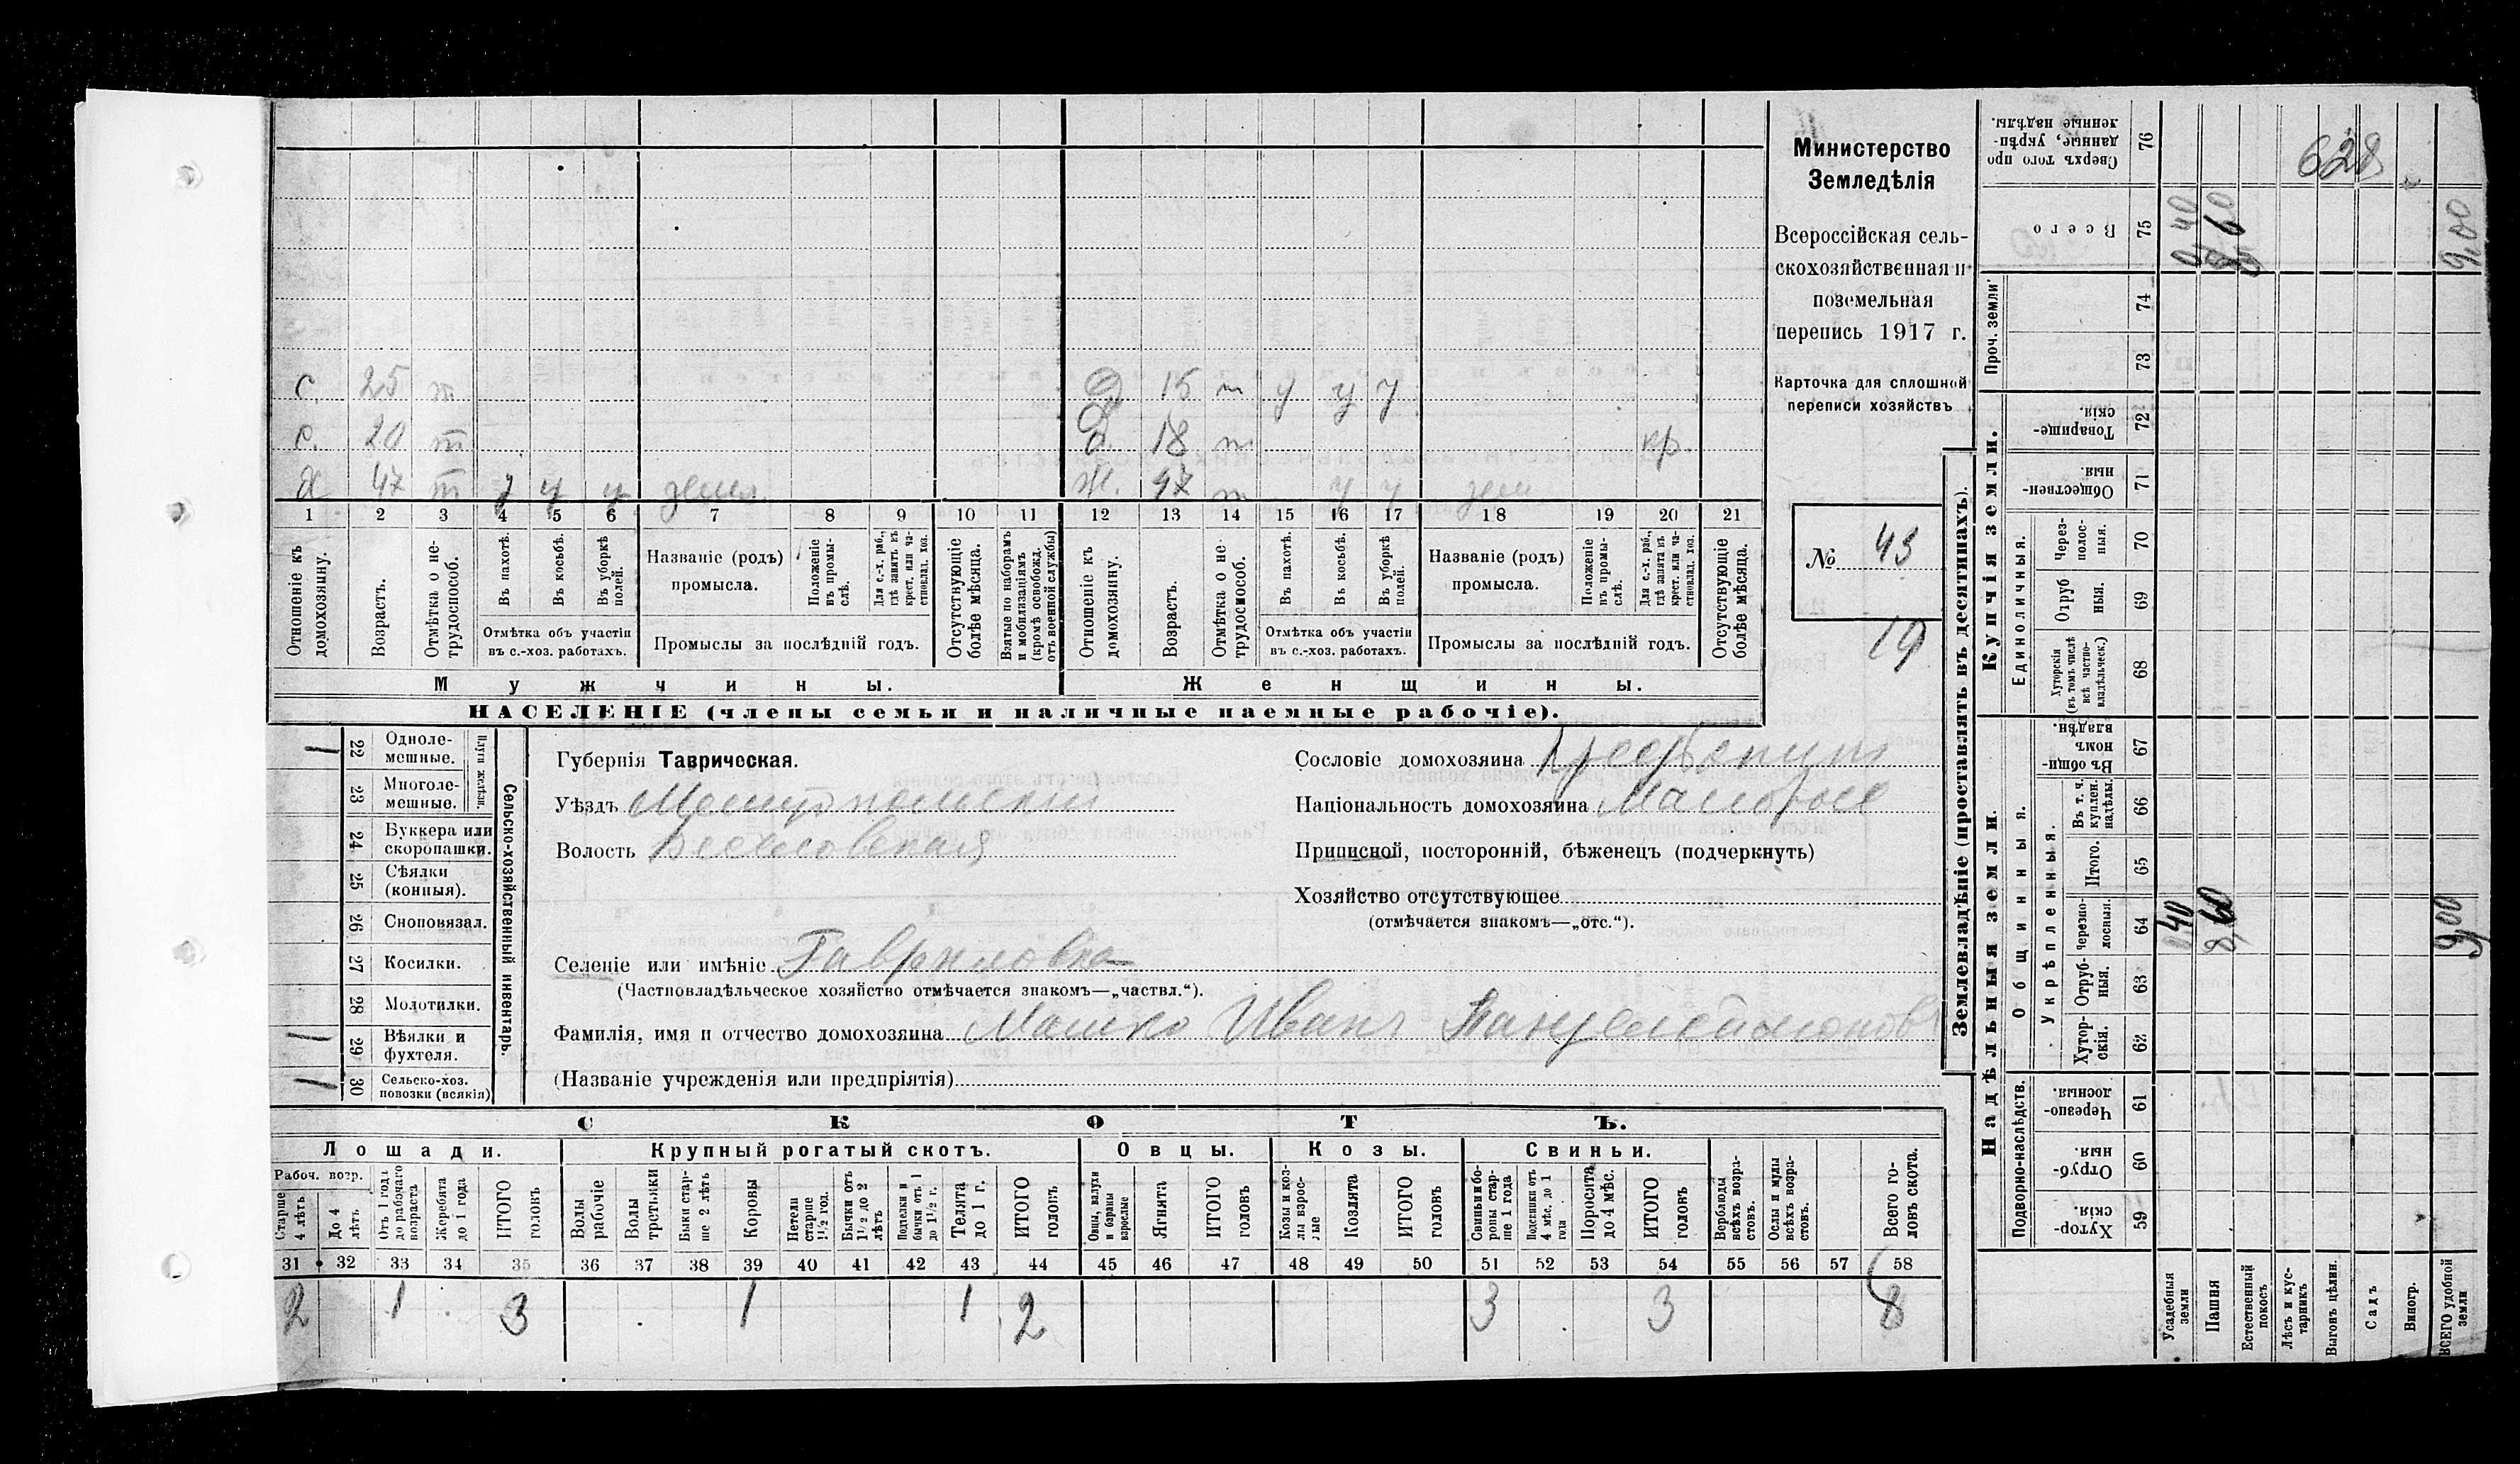 с. 25 т
Д 15 т у у у
с. 20 т
д. 18 т кр.
Х 47 т у у у земл.
Ж. 47 т у у зем
1 2 3 4 5 6 7 8 9 10 11 12 13 14 15 16 17 18 19 20 21
Отношеніе къ домохозяину.
Возрастъ.
Отмѣтка о не-трудоспособ.
Въ пахотѣ.
Въ косьбѣ.
Въ уборкѣ полей.
Отмѣтка объ участіи въ с.-хоз. работахъ.
Названіе (родъ) промысла.
Положеніе въ промы-слѣ.
Для с.-х. раб., гдѣ занятъ въ крест. или ча-стновлад. хоз.
Промыслы за послѣдній годъ.
Отсутствующіе болѣе мѣсяца.
Взятые по наборамъ и мобилизаціямъ (кромѣ освобожд. отъ военной службы)
Отношеніе къ домохозяину.
Возрастъ.
Отмѣтка о не трудоспособ.
Въ пахотѣ.
Въ косьбѣ.
Въ уборкѣ полей.
Отмѣтка объ участіи въ с.-хоз. работахъ.
Названіе (родъ) промысла.
Положеніе въ промы-слѣ.
Для с.-х. раб., гдѣ занята въ крест. или ча-стновлад. хоз.
Промыслы за послѣдній годъ.
Отсутствующіе болѣе мѣсяца.
Мужчины.
Женщины.
НАСЕЛЕНІЕ (члены семьи и наличные наемные рабочіе).
Министерство
Земледѣлія
Всероссійская сель-
скохозяйственная и
поземельная
перепись 1917 г.
Карточка для сплошной
переписи хозяйствъ
№ 43
19
Сельско-хозяйственный инвентарь.
Плуги желѣзн.
22 Одноле-мешные. 1
23 Многоле-мешные.
24 Буккера или скоропашки.
25 Сѣялки (конныя).
26 Сноповязал.
27 Косилки.
28 Молотилки.
29 Вѣялки и фухтеля. 1
30 Сельско-хоз. повозки (всякія) 1
Губернія Таврическая.
Уѣздъ Мелитопольскій
Волость Веселовская
Селеніе или имѣніе Гавриловка
(Частновладѣльческое хозяйство отмѣчается знакомъ—„частвл.“).
Фамилія, имя и отчество домохозяина Машко Иванъ Пантелеймонов
(Названіе учрежденія или предпріятія)
Сословіе домохозяина
Національность домохозяина Малоросс
Приписной, посторонній, бѣженецъ (подчеркнуть)
Хозяйство отсутствующее
(отмѣчается знакомъ—„отс.“).
СКОТЪ.
Лошади.
Крупный рогатый скотъ.
Овцы.
Козы.
Свиньи.
Рабоч. возр.
Старше 4 лѣтъ
До 4 лѣтъ
Отъ 1 года до рабочаго возраста
Жеребята до 1 года
ИТОГО головъ
Волы рабочіе
Волы третьяки
Быки стар-ше 2 лѣтъ
Коровы
Нетели старше 1½ год.
Бычки отъ 1½ до 2 лѣтъ
Подтелки и бычки отъ 1 до 1½ г.
Телята до 1 г.
ИТОГО головъ
Овцы, валухи и бараны взрослые
Ягнята
ИТОГО головъ
Козы и коз-лы взрос-лые
Козлята
ИТОГО головъ
Свиньи и бо-ровы стар-ше 1 года
Подсвинки отъ 4 мѣс. до 1 года
Поросята до 4 мѣс.
ИТОГО головъ
Верблюды всѣхъ возра-стовъ.
Ослы и мулы всѣхъ возра-стовъ.
Всего го-ловъ скота.
31 32 33 34 35 36 37 38 39 40 41 42 43 44 45 46 47 48 49 50 51 52 53 54 55 56 57 58
2 1 3 1 1 2 3 3 8
Землевладѣніе (проставлять въ десятинахъ).
Надѣльныя земли.
Купчія земли.
Проч. земли
Подворно-наслѣдств.
Общинныя.
Укрѣпленныя.
Единоличныя.
Сверхъ того про данные, укрѣп-ленные надѣлы. 76
628
Всего 75 0,40 8,60 9,00
74
73
Товарище-скія. 72
Обществен-ныя. 71
Через-полос-ныя. 70
Отруб ныя. 69
Хуторскія (въ томъ числѣ всѣ частно-владѣльческ.) 68
Въ общин-номъ владѣн. 67
Въ т. ч. куплен. надѣлы. 66
Итого. 65
Черезпо-лосныя. 64 0,40 8,60 9,00
Отруб-ныя. 63
Хутор-скія. 62
Черезпо-лосныя. 61
Отруб-ныя. 60
Хутор-скія. 59
Усадебныя земли
Пашня
Естественный покосъ
Лѣсъ и кус-тарникъ
Выгонъ цѣлин.
Садъ
Виногр.
ВСЕГО удобной земли